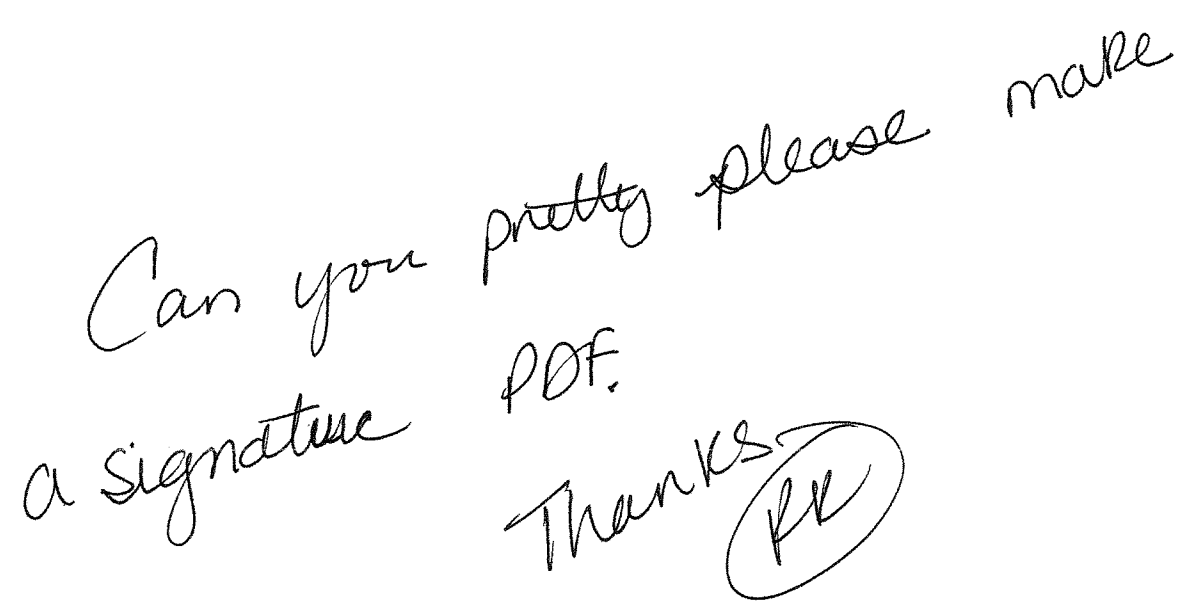 Can you pretty please make
a signature PDF.
Thanks
RK